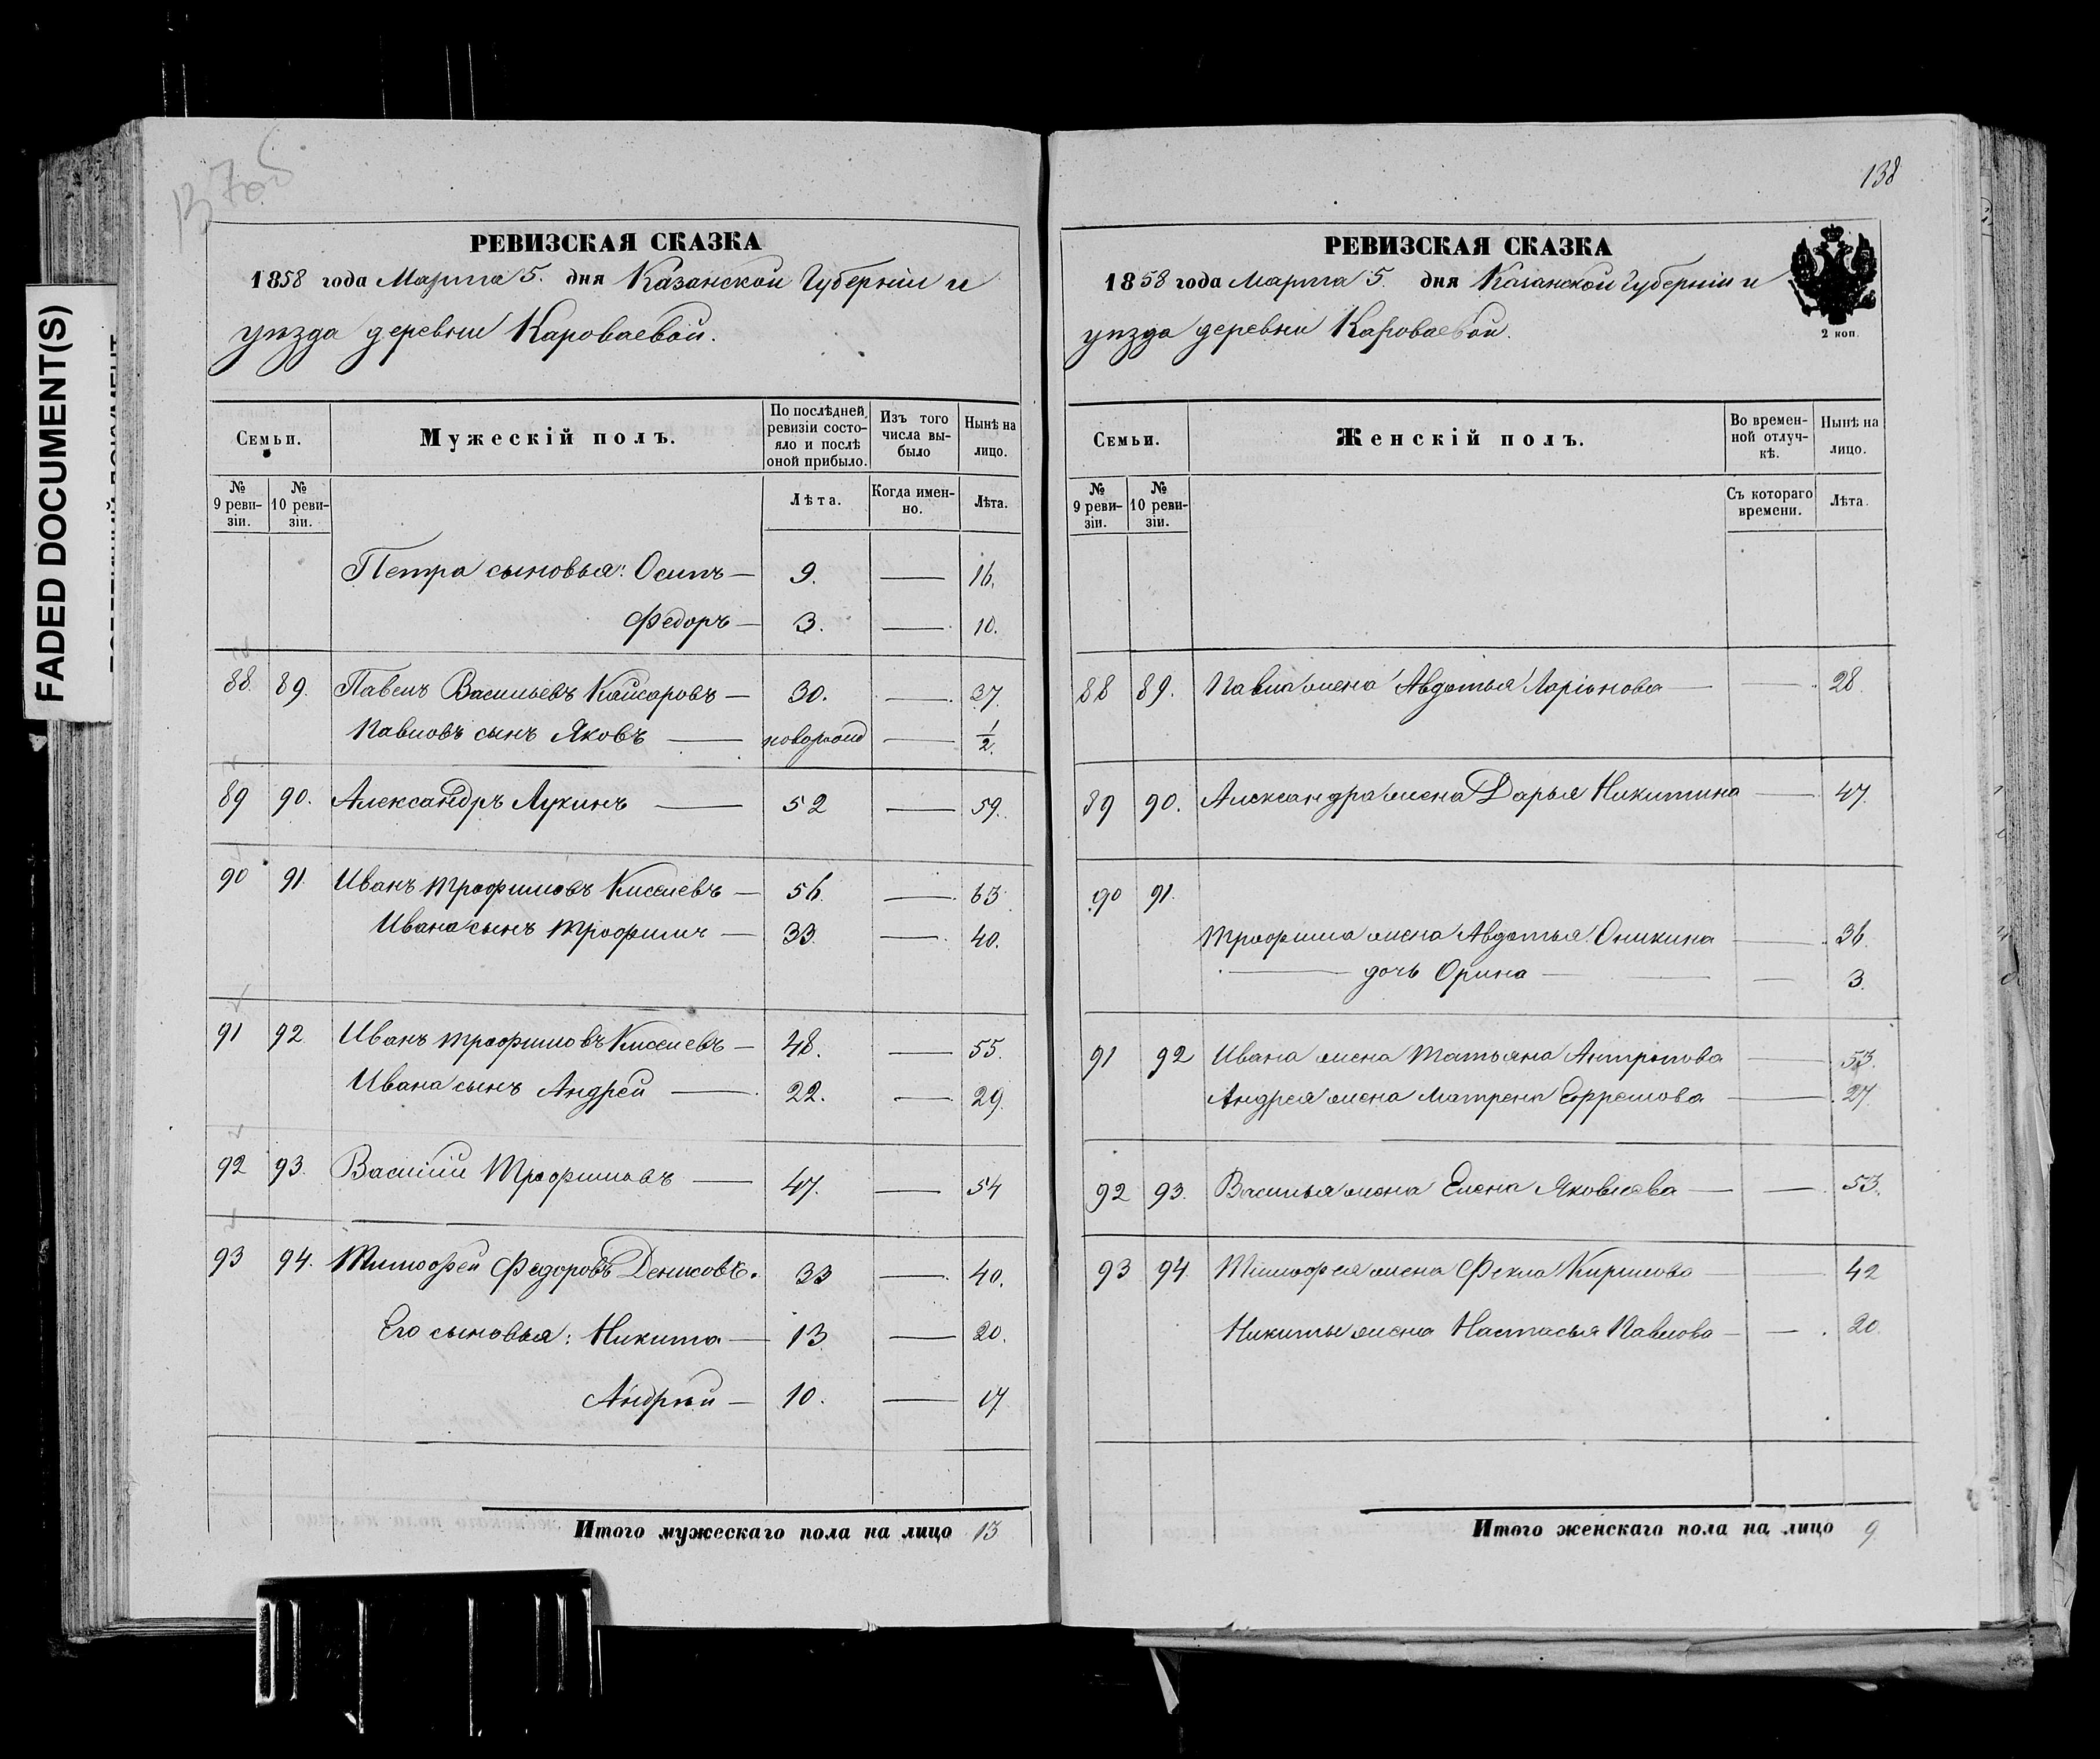 137 об
РЕВИЗСКАЯ СКАЗКА
1858 года Марта 5. дня Казанской Губерніи и
уѣзда деревни Кароваевой.
Семьи.
Мужескій полъ.
По послѣдней ревизіи состояло и послѣ оной прибыло.
Изъ того числа выбыло
Нынѣ на лицо.
№ 9 ревизіи.
№ 10 ревизіи.
Лѣта.
Когда именно.
Лѣта.
Петра сыновья: Осипъ — 9. — 16.
Федоръ — 3. — 10.
88. 89. Павелъ Васильевъ Кайсаровъ — 30. — 37.
Павловъ сынъ Яковъ — новорожд — 1/2.
89 90. Александръ Лукинъ — 52 — 59.
90 91. Иванъ Трофимовъ Киселевъ — 56. — 63.
Ивана сынъ Трофимъ — 33. — 40.
91 92 Иванъ Трофимовъ Киселевъ — 48. — 55.
Ивана сынъ Андрей — 22. — 29.
92 93. Василій Трофимовъ — 47. — 54
93 94. Тимофей Федоровъ Денисовъ. 33 — 40.
Его сыновья: Никита — 13. — 20.
Андрѣй — 10. — 17.
Итого мужескаго пола на лицо 13
138
РЕВИЗСКАЯ СКАЗКА
1858 года Марта 5. дня Казанской Губерніи и
уѣзда деревни Кароваевой.
2 коп.
Семьи.
Женскій полъ.
Во временной отлучкѣ.
Нынѣ на лицо.
№ 9 ревизіи.
№ 10 ревизіи.
Съ котораго времени.
Лѣта.
88 89. Павла жена Авдотья Ларіонова — 28.
89 90. Александра жена Дарья Никитина — 47.
90 91.
Трофима жена Авдотья Оникина — 36.
— дочь Орина — 3.
91 92 Ивана жена Татьяна Антропова — 53.
Андрея жена Матрена Ефремова — 27.
92 93. Василья жена Елена Яковлева — 53.
93 94. Тимофея жена Фекла Кирилова — 42
Никиты жена Настасья Павлова — 20.
Итого женскаго пола на лицо 9
FADED DOCUMENT(S)